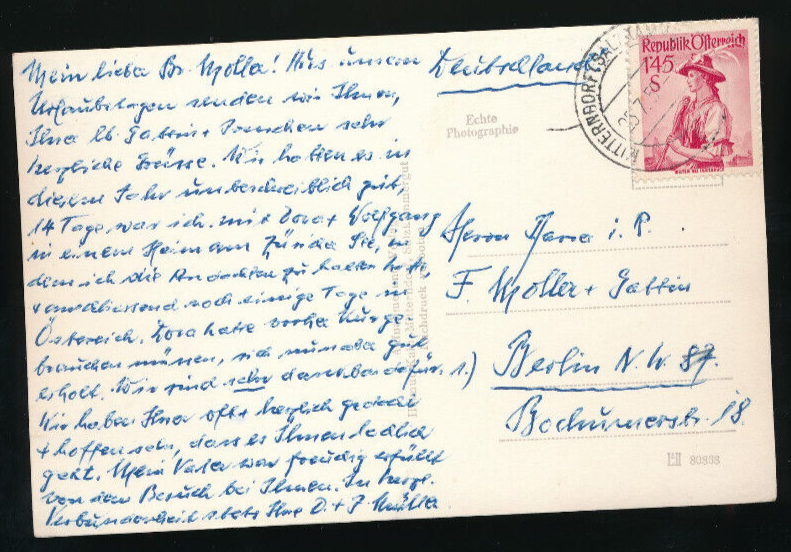 Mein lieber Br. Möller! Aus unseren
Urlaubstagen senden wir Ihnen,
Ihrer lb. Gattin + sehr
herzliche Grüsse. Wir hatten es in
diesem Jahr unbeschreiblich gut,
14 Tage war ich mit Dora + Wolfgang
in einem Heim am
dem ich die Andachten zu halten hatte,
+ anschliessend noch einige Tage in
Österreich. Dora hatte vorher
brauchen müssen, sich nun aber gut
erholt. Wir sind sehr dankbar dafür.
Wir haben Ihrer oft + herzlich gedacht
+ hoffen sehr, dass es Ihnen leidlich
geht. Mein Vater war freudig erfüllt
von dem Besuch bei Ihnen. In herzl.
Verbundenheit stets Ihre D. + J. Müller
Deutschland
Echte
Photographie
Republik Österreich
1'45
S
Herrn Pfarrer i. R.
F. Möller + Gattin
1.) Berlin N.W. 87.
Bochumerstr. 18.
80808